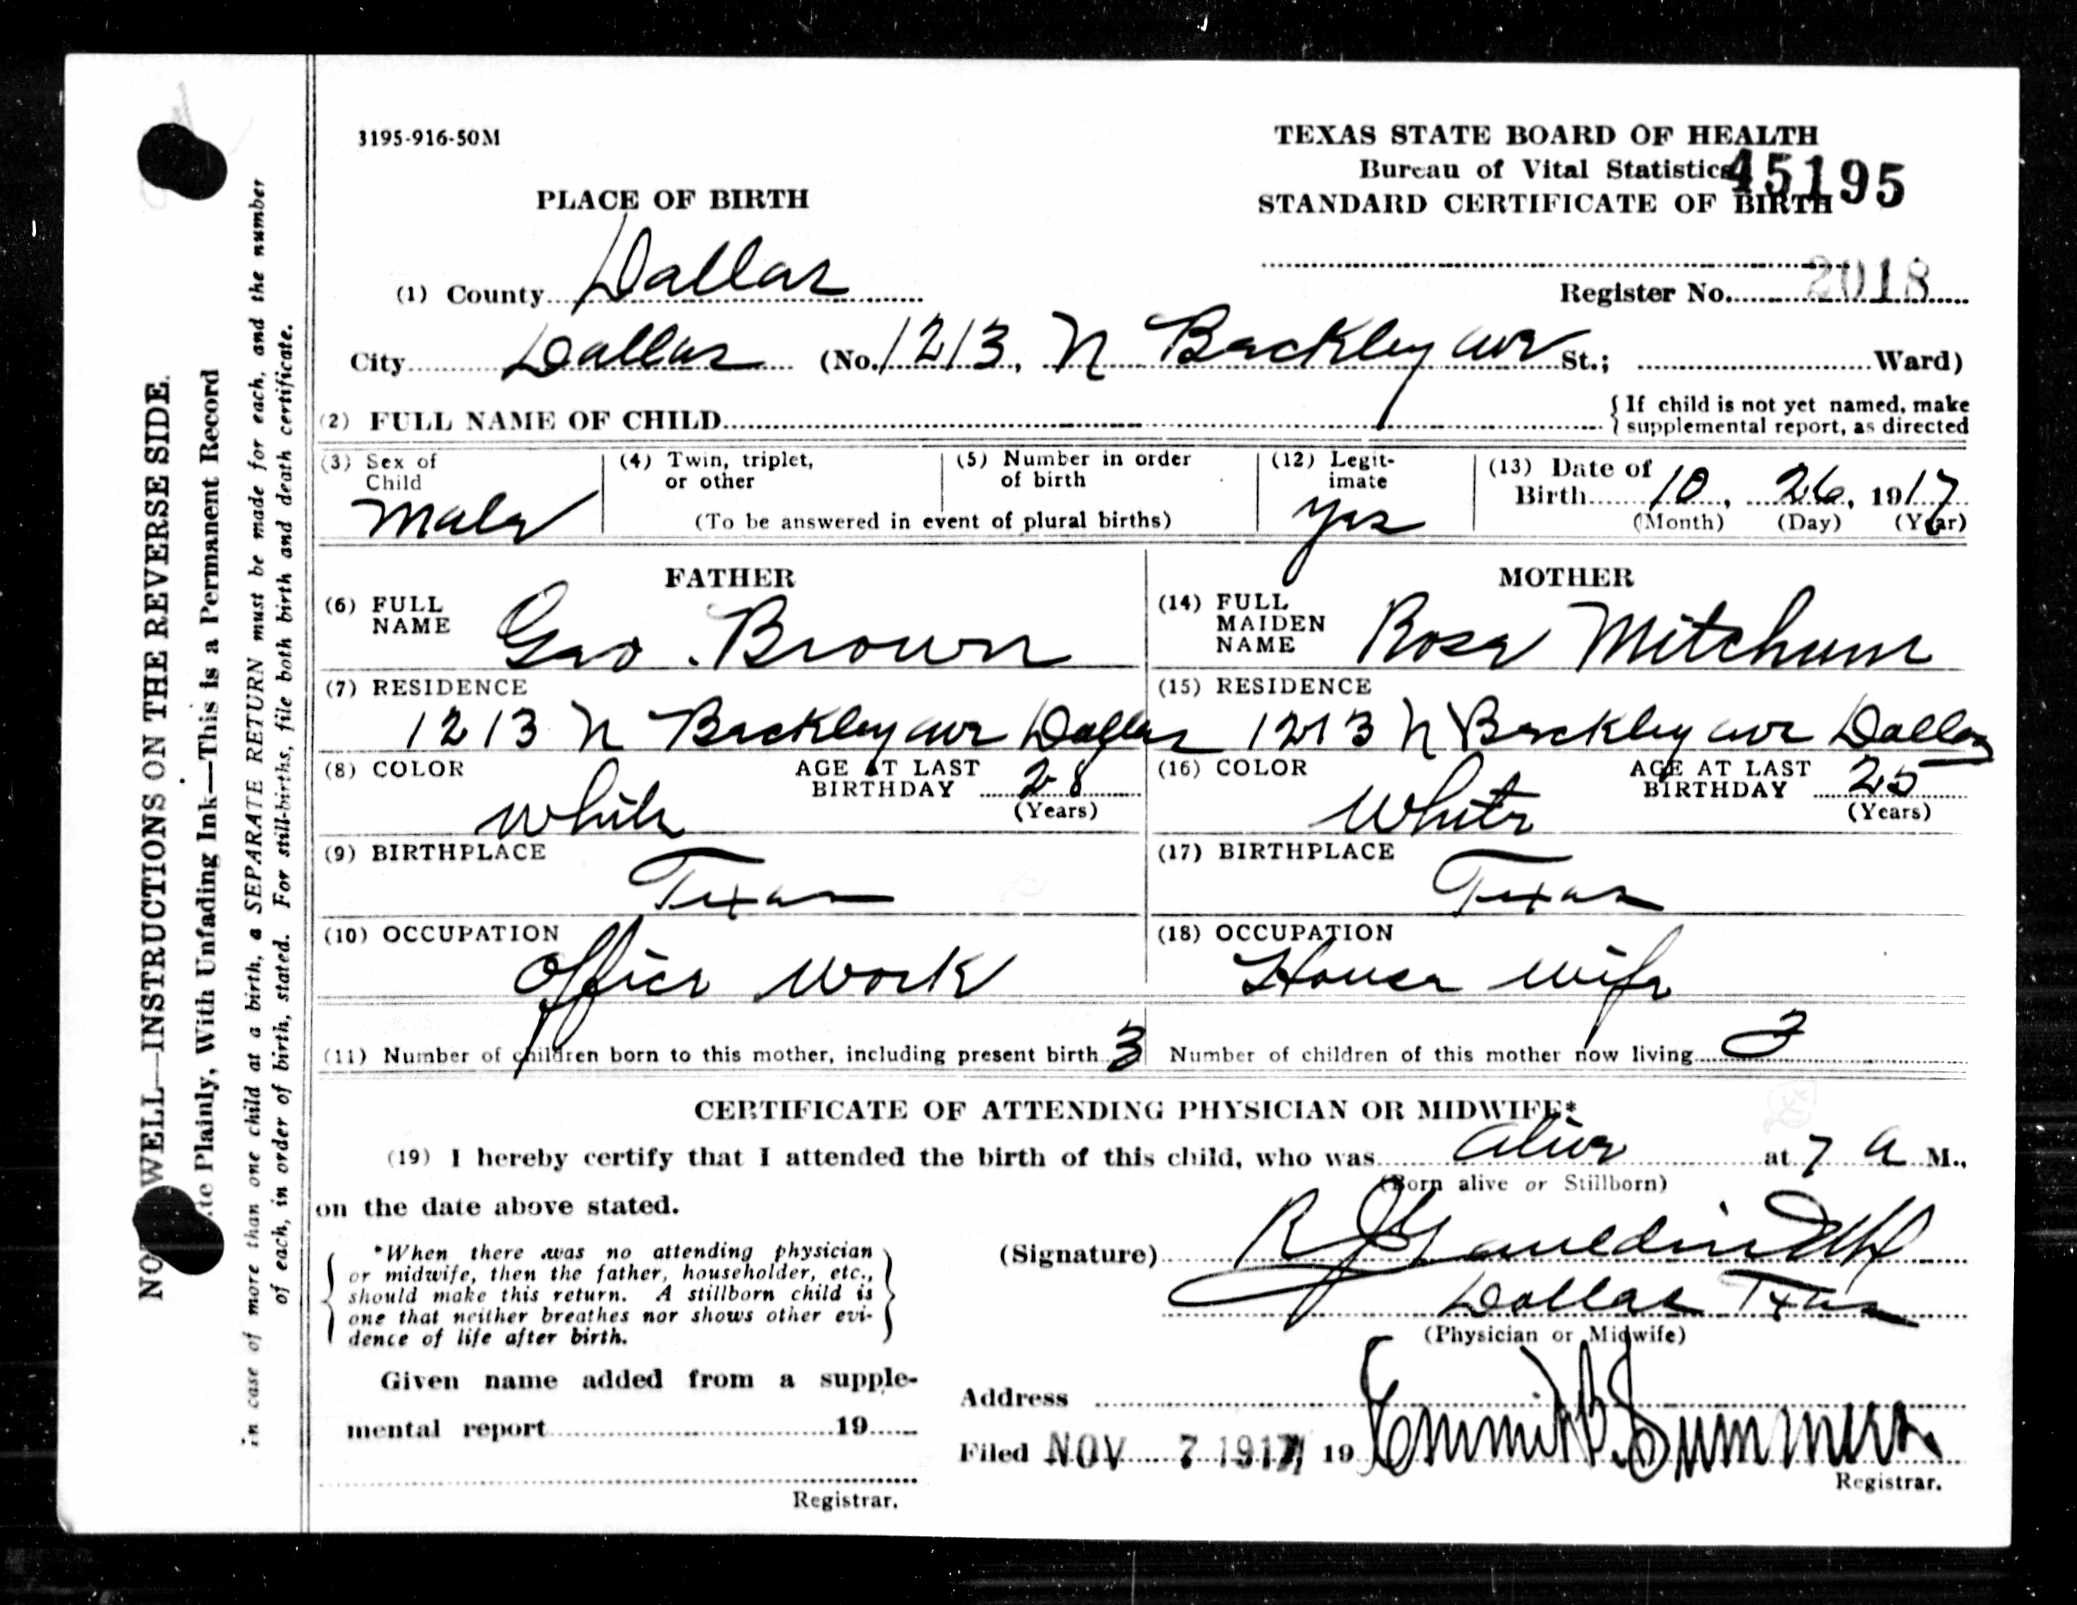 3195-916-50M
TEXAS STATE BOARD OF HEALTH
Bureau of Vital Statistics
45195
STANDARD CERTIFICATE OF BIRTH
PLACE OF BIRTH
(1) County Dallas
Register No. 2018
City Dallas (No. 1213, N Beckley ave St.; Ward)
(2) FULL NAME OF CHILD
{If child is not yet named, make
supplemental report, as directed
(3) Sex of Child Male
(4) Twin, triplet, or other
(5) Number in order of birth
(To be answered in event of plural births)
(12) Legitimate yes
(13) Date of Birth 10, 26, 1917
(Month) (Day) (Year)
FATHER
(6) FULL NAME Geo. Brown
(7) RESIDENCE
1213 N Beckley ave Dallas
(8) COLOR White AGE AT LAST BIRTHDAY 28 (Years)
(9) BIRTHPLACE Texas
(10) OCCUPATION Office Work
MOTHER
(14) FULL MAIDEN NAME Rosa Mitchum
(15) RESIDENCE
1213 N Beckley ave Dallas
(16) COLOR White AGE AT LAST BIRTHDAY 25 (Years)
(17) BIRTHPLACE Texas
(18) OCCUPATION House wife
(11) Number of children born to this mother, including present birth 3 Number of children of this mother now living 3
CERTIFICATE OF ATTENDING PHYSICIAN OR MIDWIFE*
(19) I hereby certify that I attended the birth of this child, who was alive at 7 a M.,
(Born alive or Stillborn)
on the date above stated.
*When there was no attending physician
or midwife, then the father, householder, etc.,
should make this return. A stillborn child is
one that neither breathes nor shows other evi-
dence of life after birth.
(Signature) R J Gauldin MD
Dallas Texas
(Physician or Midwife)
Given name added from a supple-
mental report 19
Registrar.
Address
Filed NOV 7 1917, 19 Emmitt B. Summers
Registrar.
WELL—INSTRUCTIONS ON THE REVERSE SIDE.
Plainly, With Unfading Ink—This is a Permanent Record
in case of more than one child at a birth, a SEPARATE RETURN must be made for each, and the number
of each, in order of birth, stated. For still-births, file both birth and death certificate.